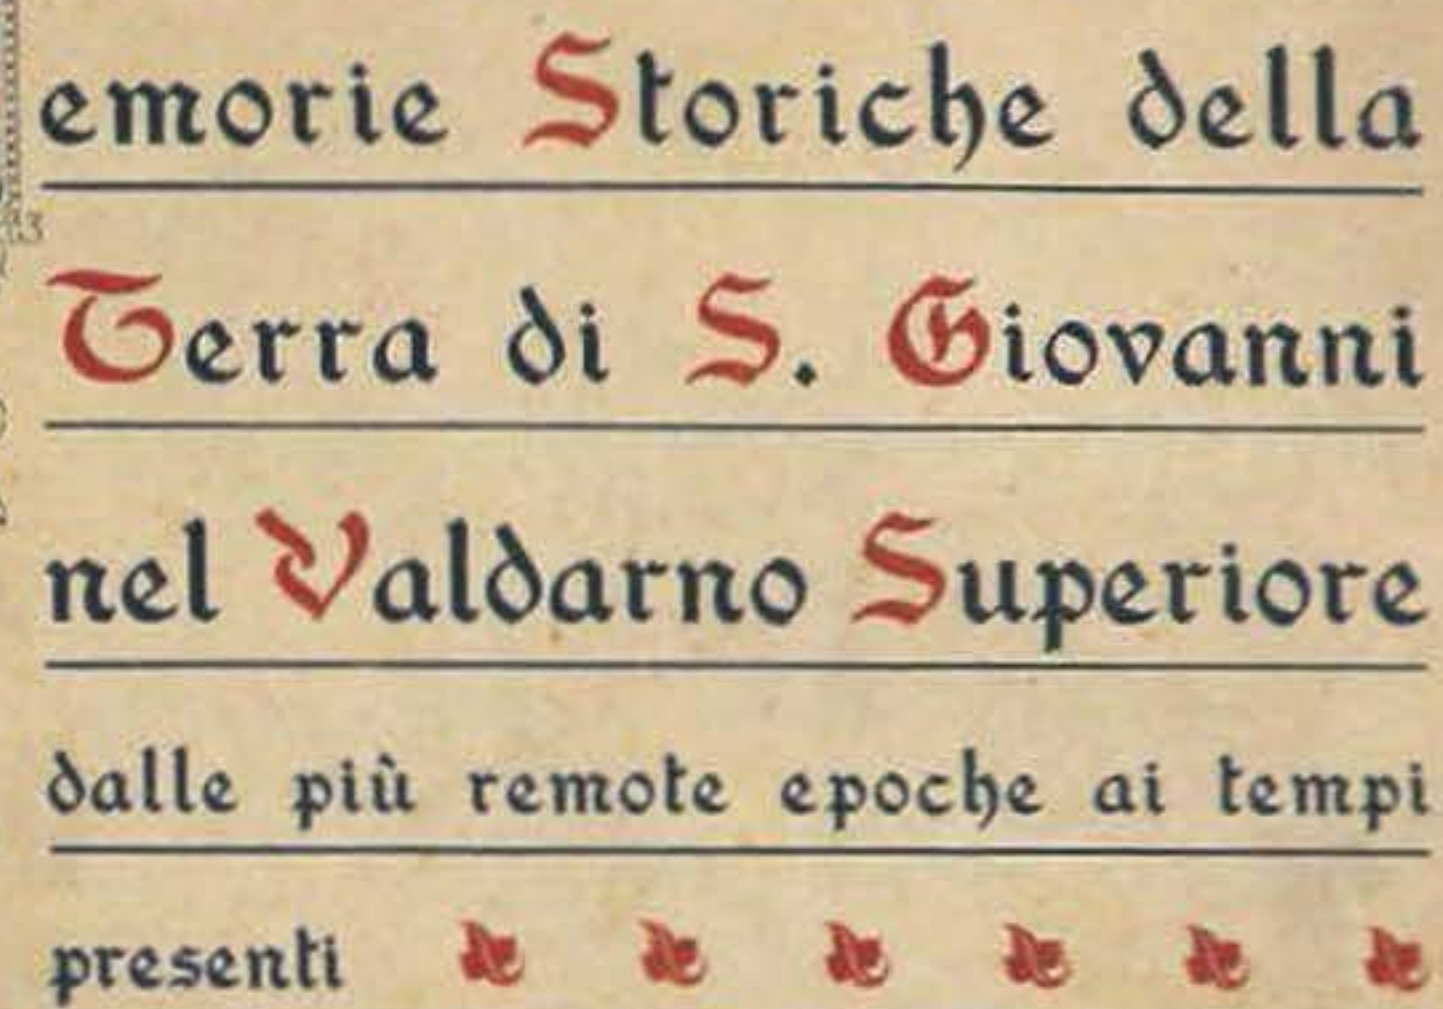 emorie Storiche della
Terra di S. Giovanni
nel Valdarno Superiore
dalle più remote epoche ai tempi
presenti